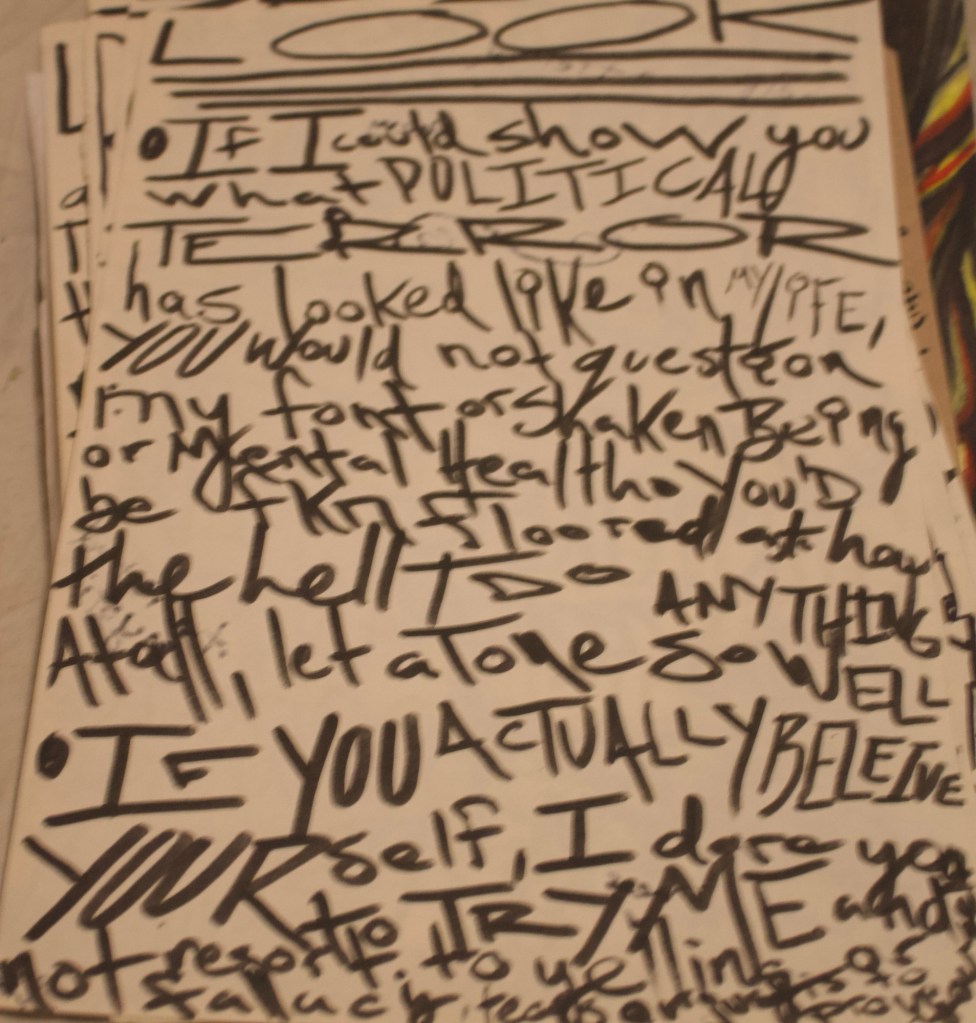 LOOK
• If I could show you
what POLITICAL
TERROR
has looked like in MY LIFE,
YOU would not question
my font or shaken Being
or Mental Health. You'D
be fkn floored at how
the hell I DO ANYTHING
At all, let alone so WELL
• IF YOU ACTUALLY BELEIVE
YOURself, I dare you
to TRY ME and
not resort to yelling or